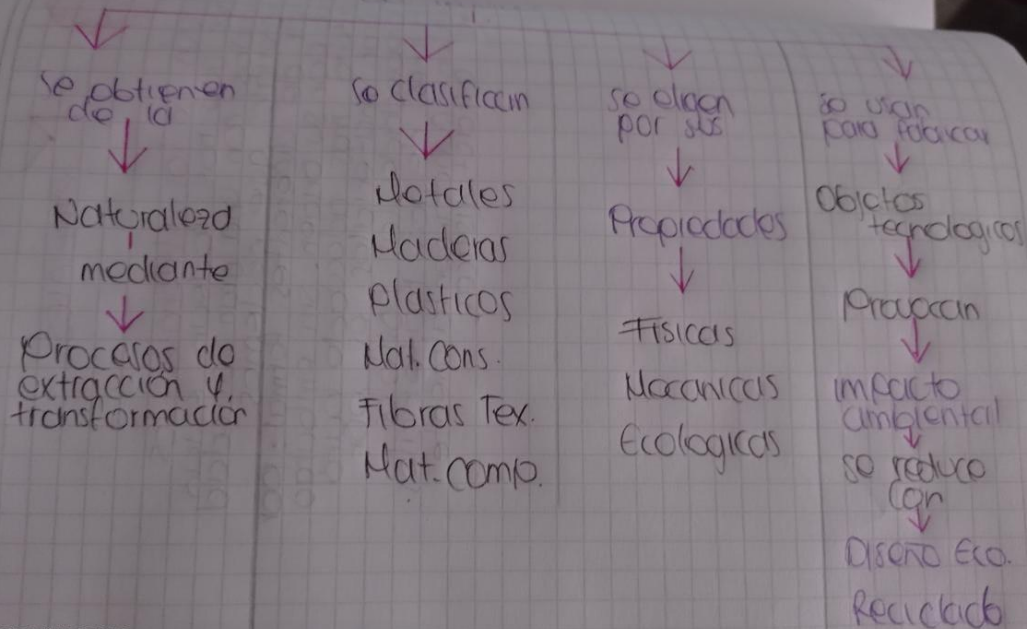 se obtienen
de la
Naturaleza
mediante
Procesos de
extracción y
transformación
se clasifican
Metales
Maderas
Plasticos
Mat. Cons.
Fibras Tex.
Mat. Comp.
se eligen
por sus
Propiedades
Fisicas
Mecanicas
Ecologicas
se usan
para fabricar
Objetos
tecnologicos
Provocan
impacto
ambiental
se reduce
con
Diseño Eco.
Reciclado